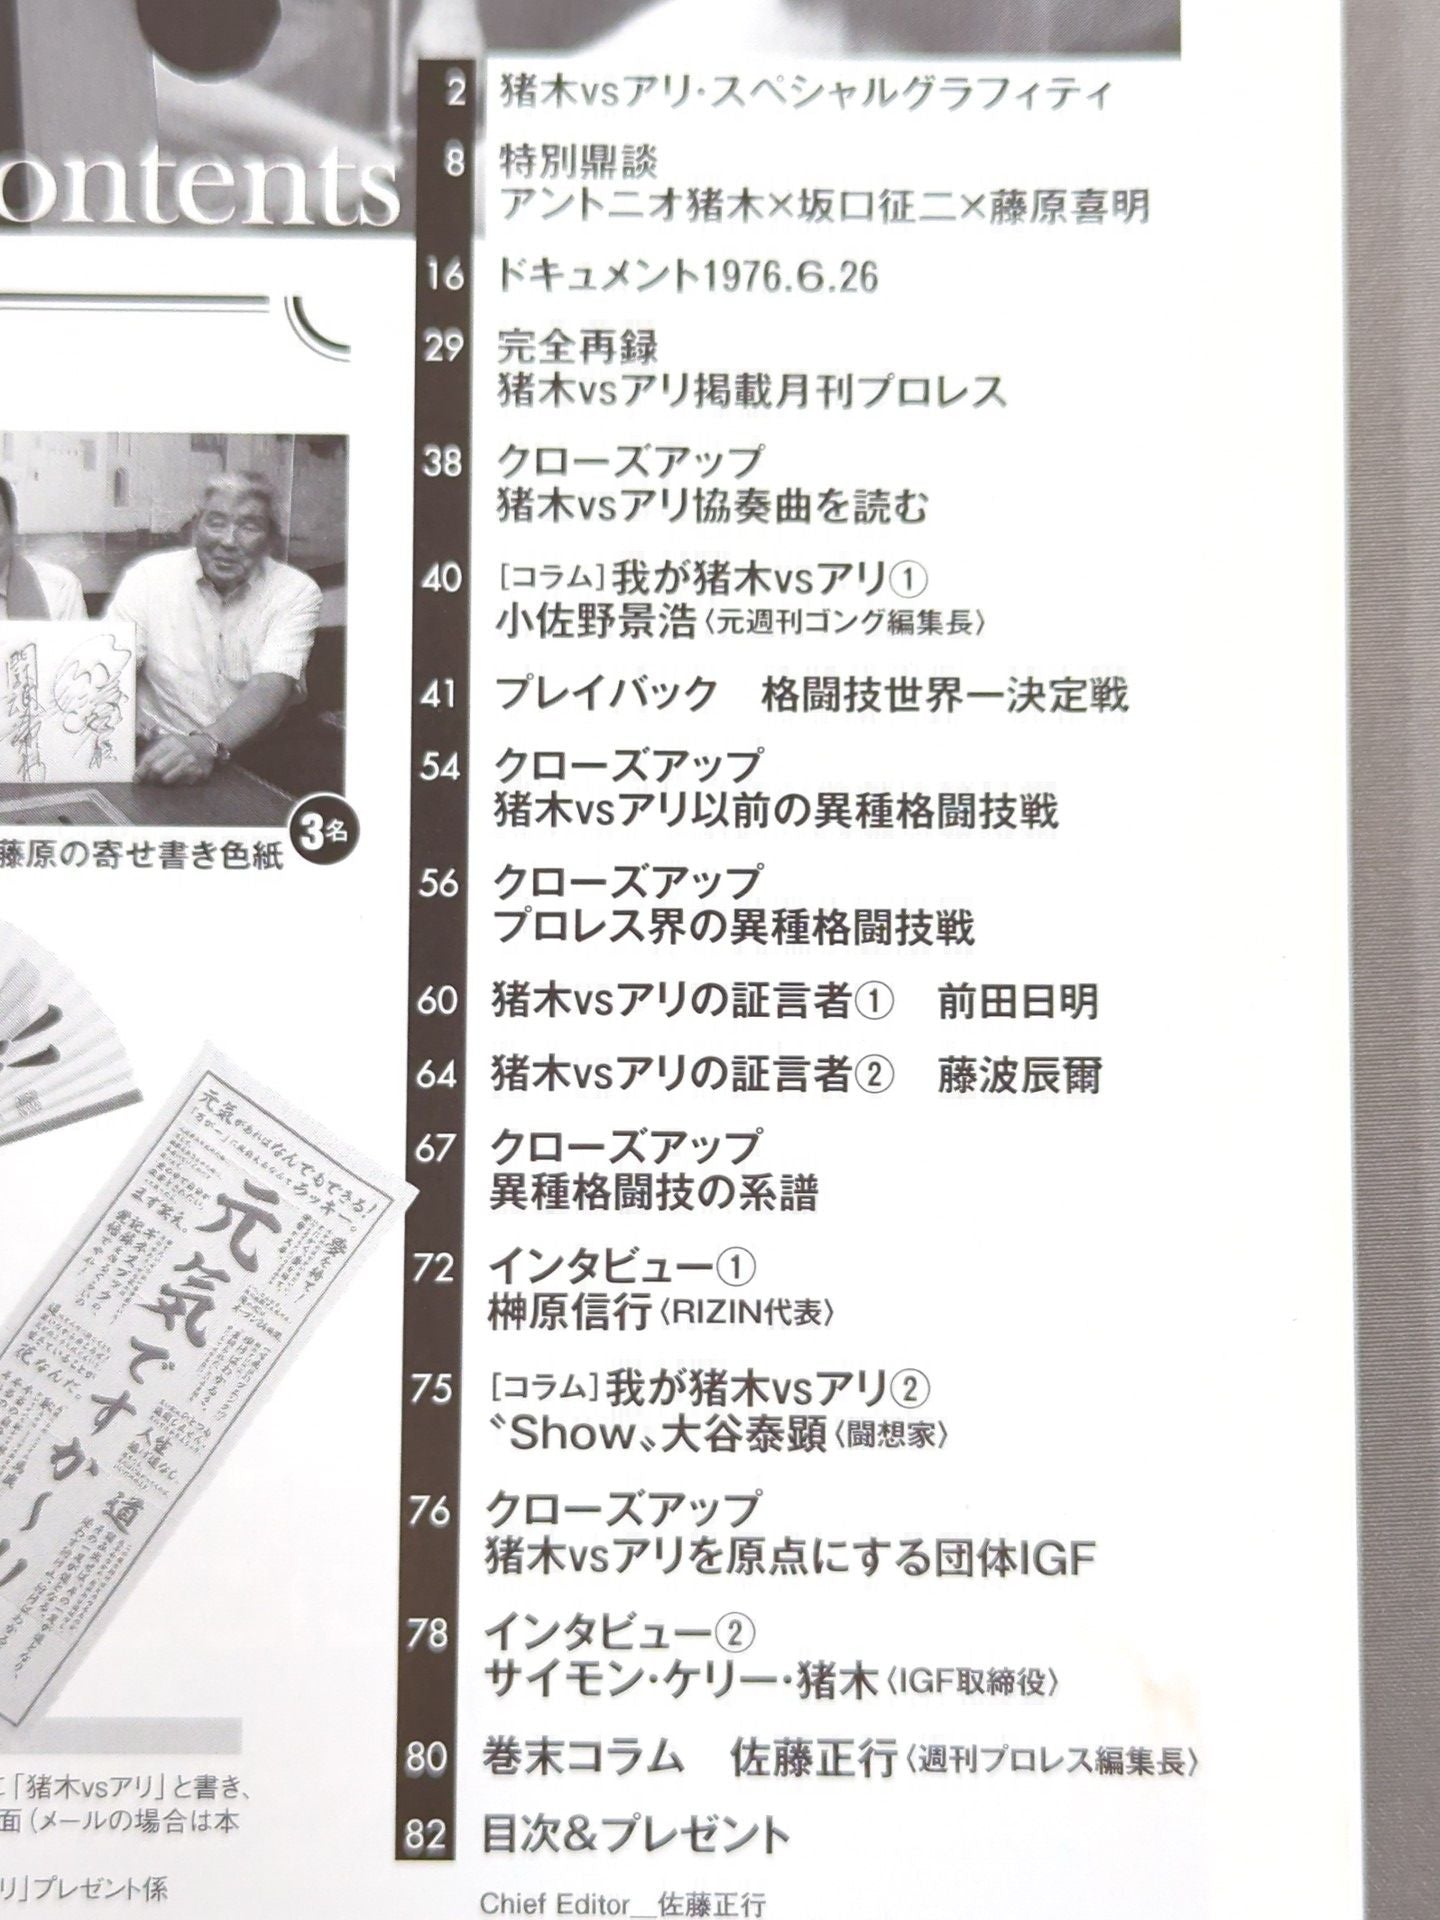 ontents
2 猪木vsアリ・スペシャルグラフィティ
8 特別鼎談
アントニオ猪木×坂口征二×藤原喜明
16 ドキュメント1976.6.26
29 完全再録
猪木vsアリ掲載月刊プロレス
38 クローズアップ
猪木vsアリ協奏曲を読む
40 [コラム]我が猪木vsアリ①
小佐野景浩〈元週刊ゴング編集長〉
41 プレイバック　格闘技世界一決定戦
54 クローズアップ
猪木vsアリ以前の異種格闘技戦
56 クローズアップ
プロレス界の異種格闘技戦
60 猪木vsアリの証言者①　前田日明
64 猪木vsアリの証言者②　藤波辰爾
67 クローズアップ
異種格闘技の系譜
72 インタビュー①
榊原信行〈RIZIN代表〉
75 [コラム]我が猪木vsアリ②
〝Show〟大谷泰顕〈闘想家〉
76 クローズアップ
猪木vsアリを原点にする団体IGF
78 インタビュー②
サイモン・ケリー・猪木〈IGF取締役〉
80 巻末コラム　佐藤正行〈週刊プロレス編集長〉
82 目次&プレゼント
Chief Editor__佐藤正行
3名
藤原の寄せ書き色紙
元気があればなんでもできる!
元気ですか〜
道
に「猪木vsアリ」と書き、
面（メールの場合は本
リ」プレゼント係